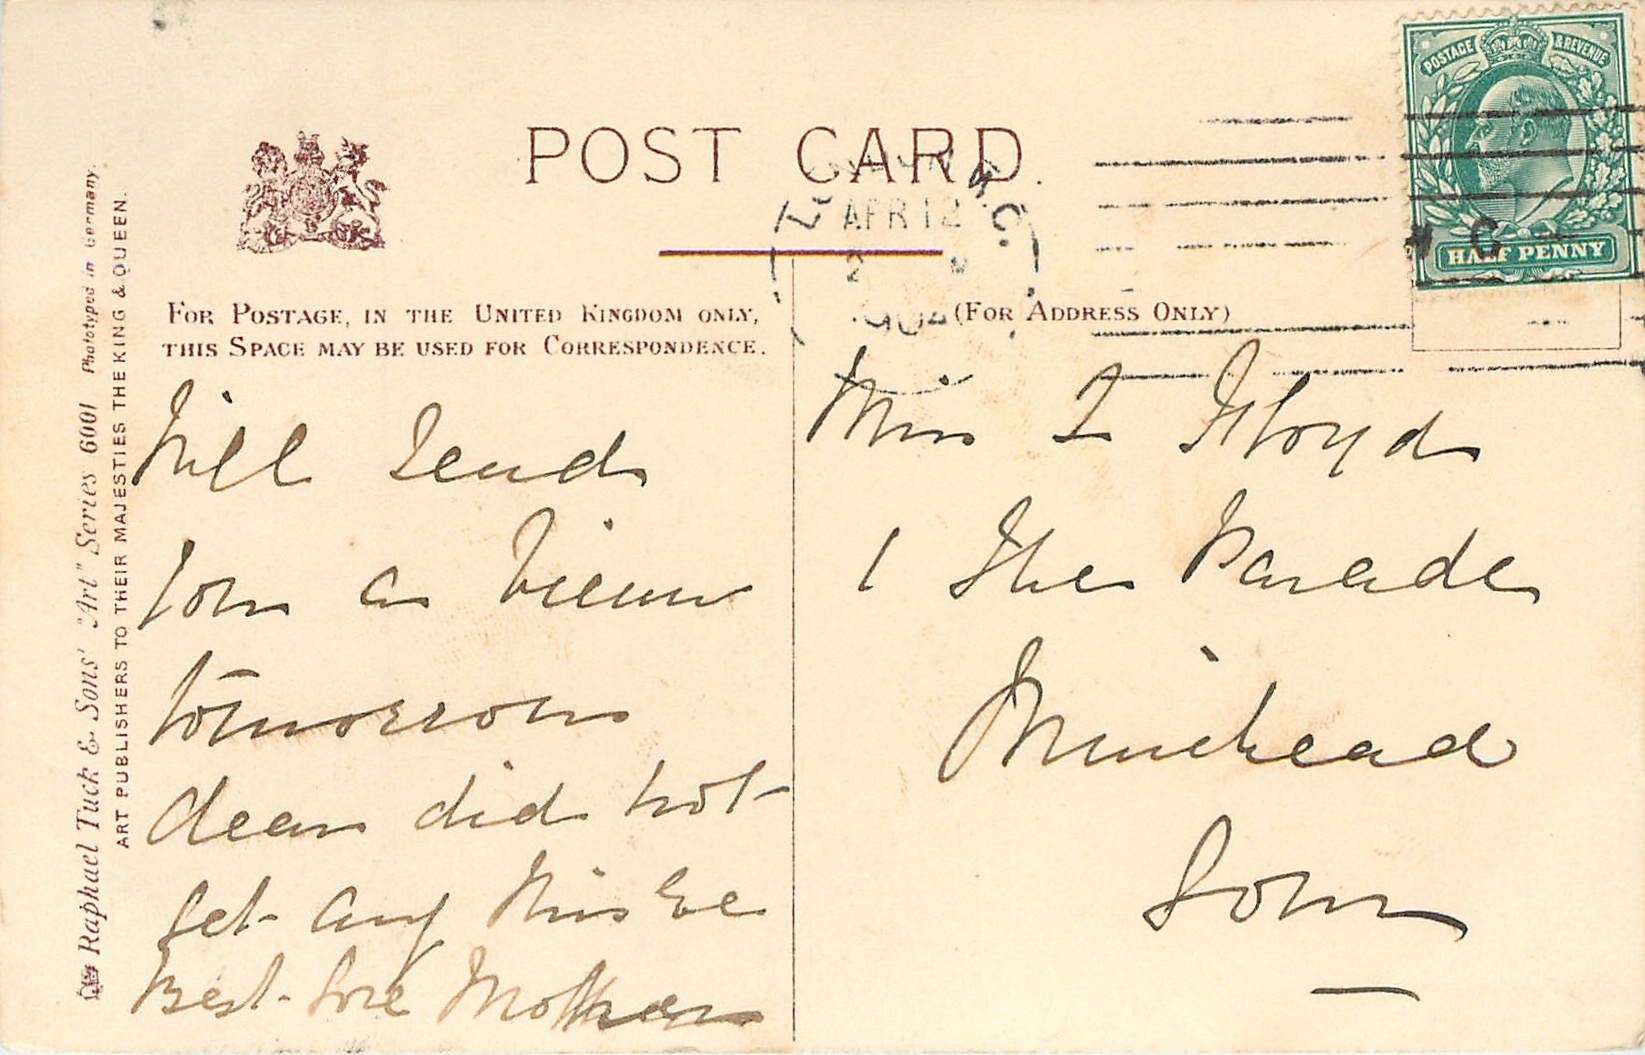 POSTAGE & REVENUE
HALF PENNY
POST CARD
LONDON W.C.
APR 12
2
1904
FOR POSTAGE, IN THE UNITED KINGDOM ONLY,
THIS SPACE MAY BE USED FOR CORRESPONDENCE.
(FOR ADDRESS ONLY)
Will send
you a view
tomorrow
dear did not
get any this Eve
Best love Mother
Miss I Floyd
1 The Parade
Minehead
Som
Raphael Tuck & Sons' "Art" Series 6001 Phototyped in Germany.
ART PUBLISHERS TO THEIR MAJESTIES THE KING & QUEEN.